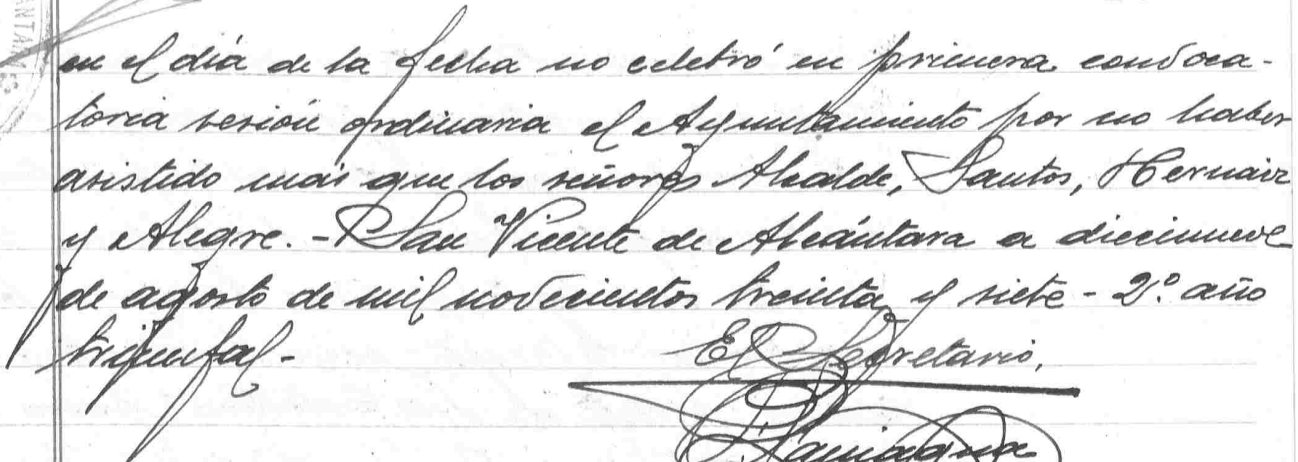 en el día de la fecha no celebró en primera convoca-
toria sesión ordinaria el Ayuntamiento por no haber
asistido más que los señores Alcalde, Santos, Hernaiz
y Alegre.- San Vicente de Alcántara a diecinueve
de agosto de mil novecientos treinta y siete - 2º. año
triunfal-
El Secretario,